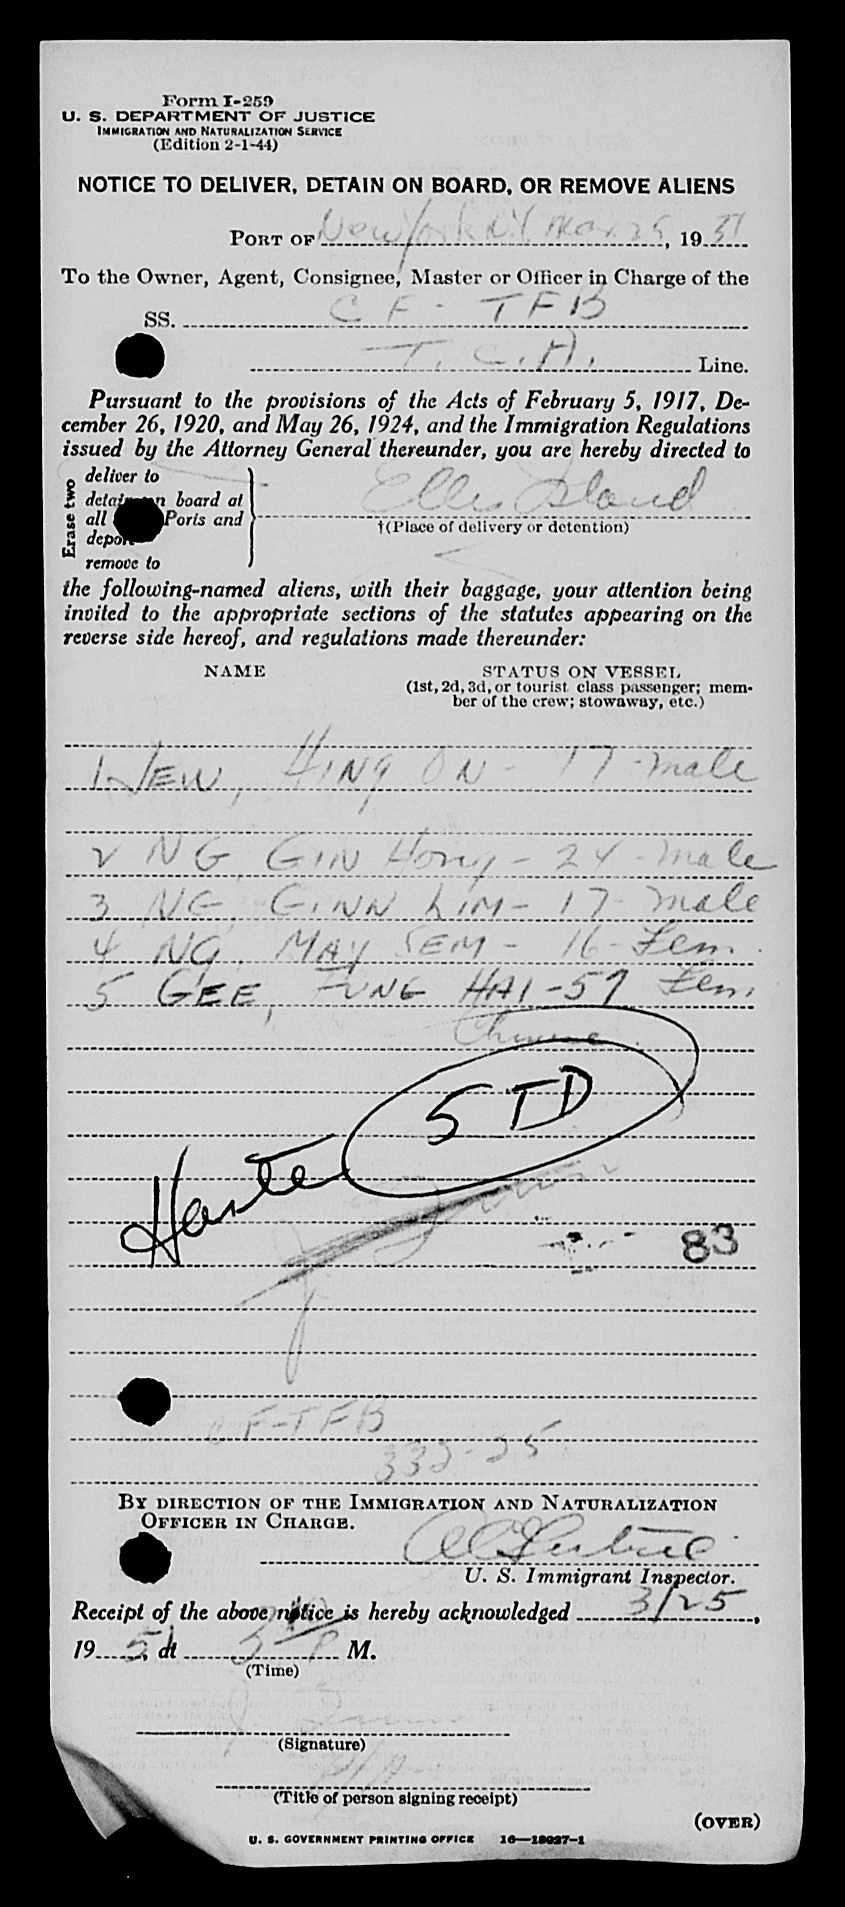 Form I-259
U. S. DEPARTMENT OF JUSTICE
IMMIGRATION AND NATURALIZATION SERVICE
(Edition 2-1-44)
NOTICE TO DELIVER, DETAIN ON BOARD, OR REMOVE ALIENS
PORT OF New York N.Y. Mar 25, 1951
To the Owner, Agent, Consignee, Master or Officer in Charge of the
SS. CF-TFB
T.C.A. Line.
Pursuant to the provisions of the Acts of February 5, 1917, De-
cember 26, 1920, and May 26, 1924, and the Immigration Regulations
issued by the Attorney General thereunder, you are hereby directed to
Erase two
deliver to
detain on board at
all Ports and
deport
remove to
Ellis Island
†(Place of delivery or detention)
the following-named aliens, with their baggage, your attention being
invited to the appropriate sections of the statutes appearing on the
reverse side hereof, and regulations made thereunder:
NAME STATUS ON VESSEL
(1st, 2d, 3d, or tourist class passenger; mem-
ber of the crew; stowaway, etc.)
1 JEW, HING ON - 17 - male
2 NG, GIN Hong - 24 - male
3 NG, GINN LIM - 17 - male
4 NG, MAY SEM - 16 - Fem.
5 GEE, FUNG HAI - 57 Fem.
Chinese
5 TD
83
CF-TFB
332-25
BY DIRECTION OF THE IMMIGRATION AND NATURALIZATION
OFFICER IN CHARGE.
U. S. Immigrant Inspector.
Receipt of the above notice is hereby acknowledged 3/25,
1951, at 3 P M.
(Time)
(Signature)
(Title of person signing receipt)
(OVER)
U. S. GOVERNMENT PRINTING OFFICE 16—18927-1